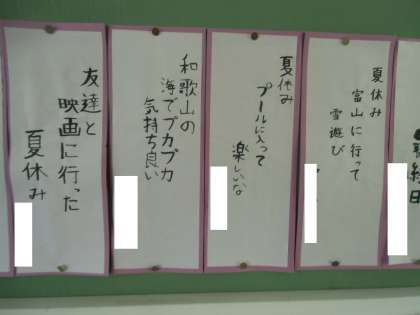 夏休み
富山に行って
雪遊び
夏休み
プールに入って
楽しいな
和歌山の
海でプカプカ
気持ち良い
友達と
映画に行った
夏休み